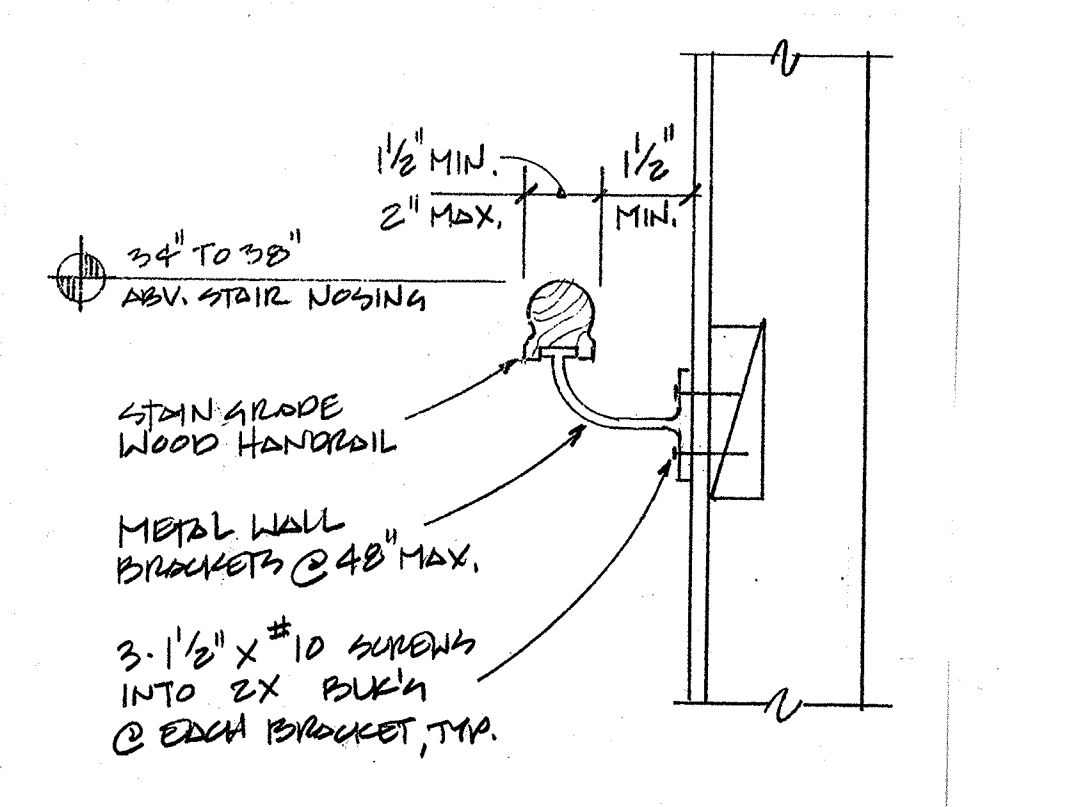 1 1/2" MIN.
2" MAX.
1 1/2"
MIN.
34" TO 38"
ABV. STAIR NOSING
STAIN GRADE
WOOD HANDRAIL
METAL WALL
BRACKETS @ 48" MAX.
3 · 1 1/2" X #10 SCREWS
INTO 2X BLK'G
@ EACH BRACKET, TYP.